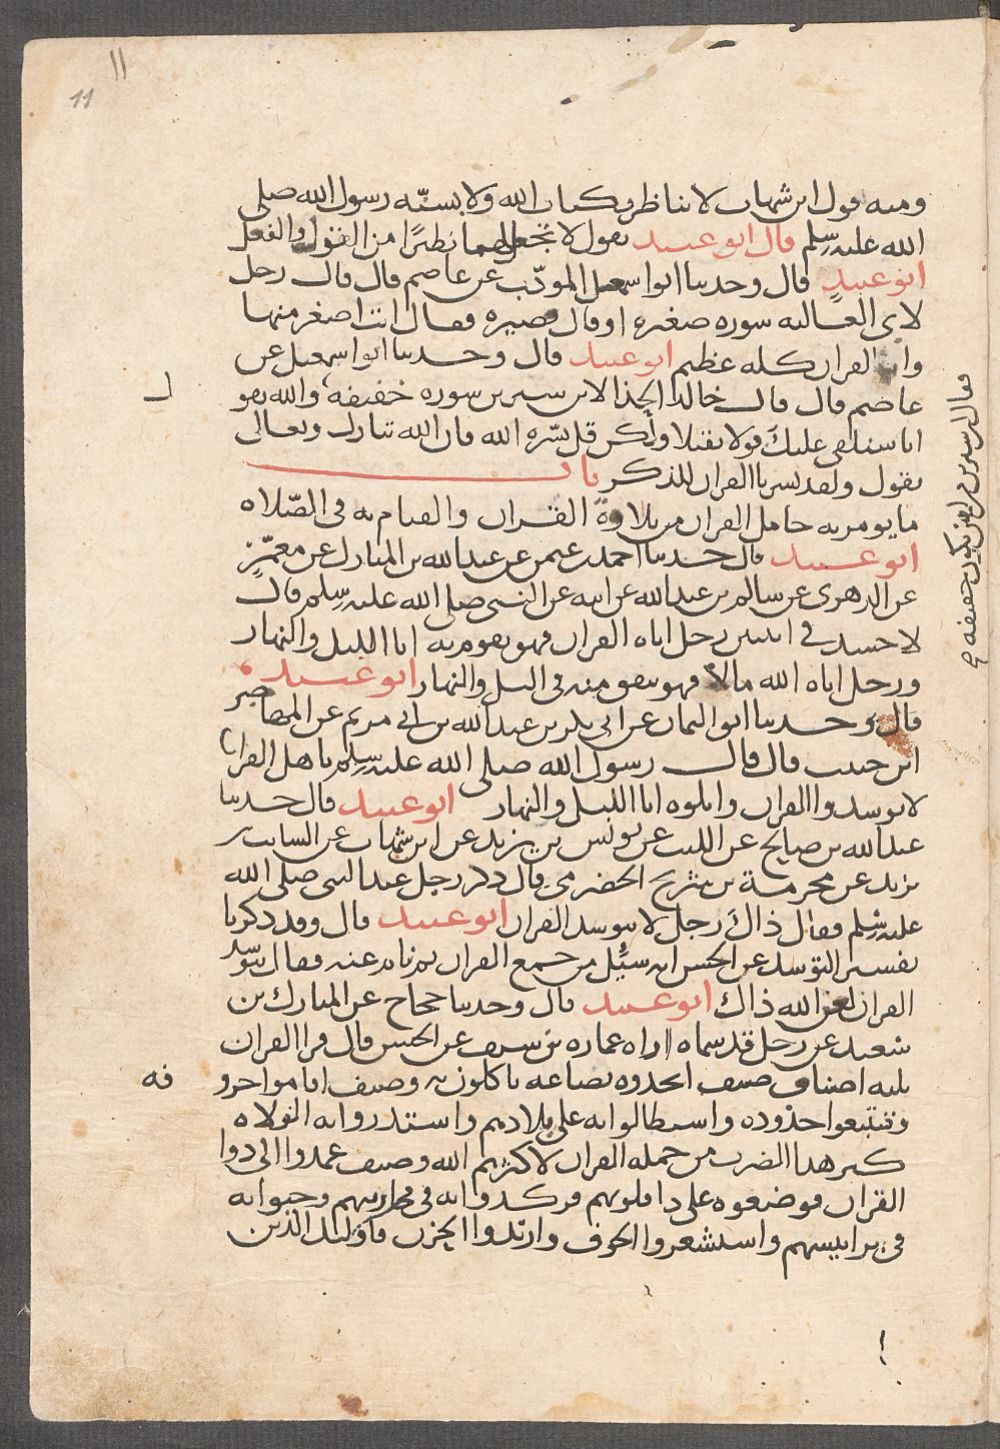 11
11
ومنه قول ابن شهاب لا تناظر بكتاب الله ولا بسنّة رسول الله صلى
الله عليه وسلم قال ابو عبيد يقول لا تجعل لهما نظيرًا من القول والفعل
ابو عبيدٍ قال وحدثنا ابو اسمعيل المؤدّب عن عاصم قال قال رجل
لابى العالية سورة صغيرة او قال قصيرة فقال انت اصغر منها
وان القران كله عظيم ابو عبيد قال وحدثنا ابو اسمعيل عن
عاصم قال قال خالد الحذا لابن سيرين سورة خفيفة والله يقو
انا سنلقى عليك قولا ثقيلا ولكن قل يسّره الله فان الله تبارك وتعالى
يقول ولقد يسرنا القران للذكر باب
ما يومر به حامل القران من تلاوة القران والقيام به فى الصّلاه
ابو عبيد قال حدثنا احمد بن عثمن عن عبد الله بن المبارك عن معمّرٍ
عن الزهرى عن سالم بن عبد الله عن ابيه عن النبى صلى الله عليه وسلم قال
لا حسد فى اثنين رجل اتاه القران فهو يقوم به انا الليل والنهار
ورجل اتاه الله مالًا فهو ينفق منه فى اليل والنهار ابو عبيد
قال وحدثنا ابو اليمان عن ابى بكر بن عبد الله بن ابى مريم عن المهاصر
ابن حبيب قال قال رسول الله صلى الله عليه وسلم يا هل القران
لا توسدوا القران واتلوه انا الليل والنهار ابو عبيد قال حدثنا
عبد الله بن صالح عن الليث عن يونس بن يزيد عن ابن شهاب عن السايب بن
يزيد عن مخرمة بن شريح الحضرمى قال ذكر رجل عند النبى صلى الله
عليه وسلم فقال ذاك رجل لا يتوسد القران ابو عبيد قال وقد ذكرنا
تفسير التوسد عن الحسن انه سئل عن جمع القران ثم نام عنه فقال يتوسد
القران لعن الله ذاك ابو عبيد قال وحدثنا حجاج عن المبارك بن
سعيد عن رجل قد سماه اراه عماره بن سيف عن الحسن قال قرا القران
ثلثه اصناف صنف اتخذوه بضاعه ياكلون به وصنف اقاموا حرو
فه
وضيّعوا حدوده واستطالوا به على بلادهم واستدروا به الولاه
كثر هذا الضرب من حمله القران لا كثرهم الله وصنف عمدوا الى دوا
القران فوضعوه على دا قلوبهم فركدوا به فى محاريبهم وحنوا به
فى برانيسهم واستشعروا الخوف وارتدوا الحزن فاوليك الذين